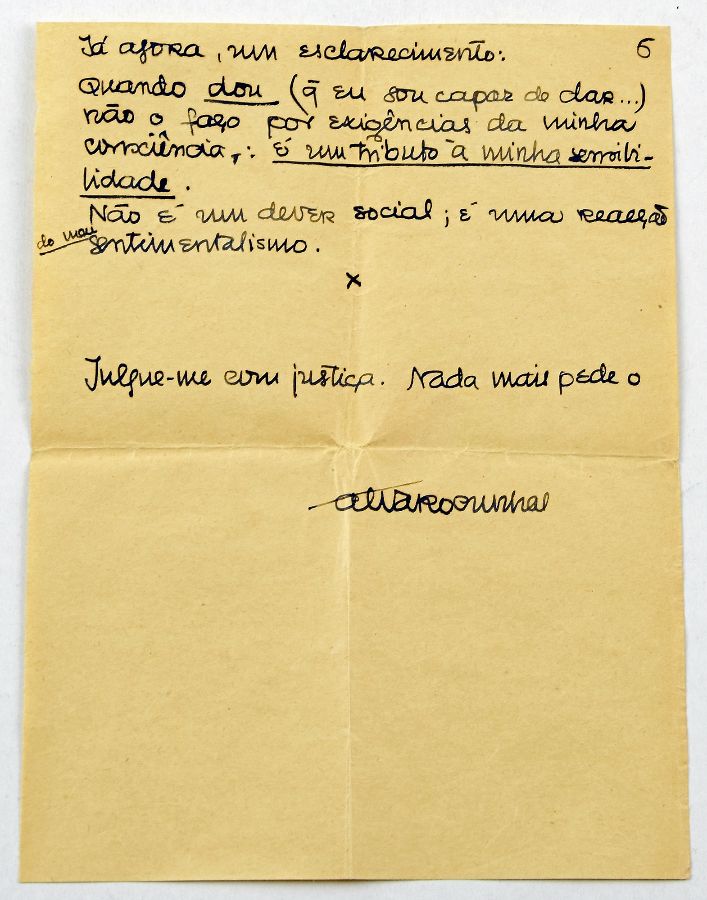 Já agora, um esclarecimento: 6
Quando dou (q̄ eu sou capaz de dar...)
não o faço por exigências da minha
consciência,: é um tributo à minha sensibi-
lidade.
Não é um dever social; é uma reacção
do meu sentimentalismo.
x
Julgue-me com justiça. Nada mais pede o
alvaro cunhal